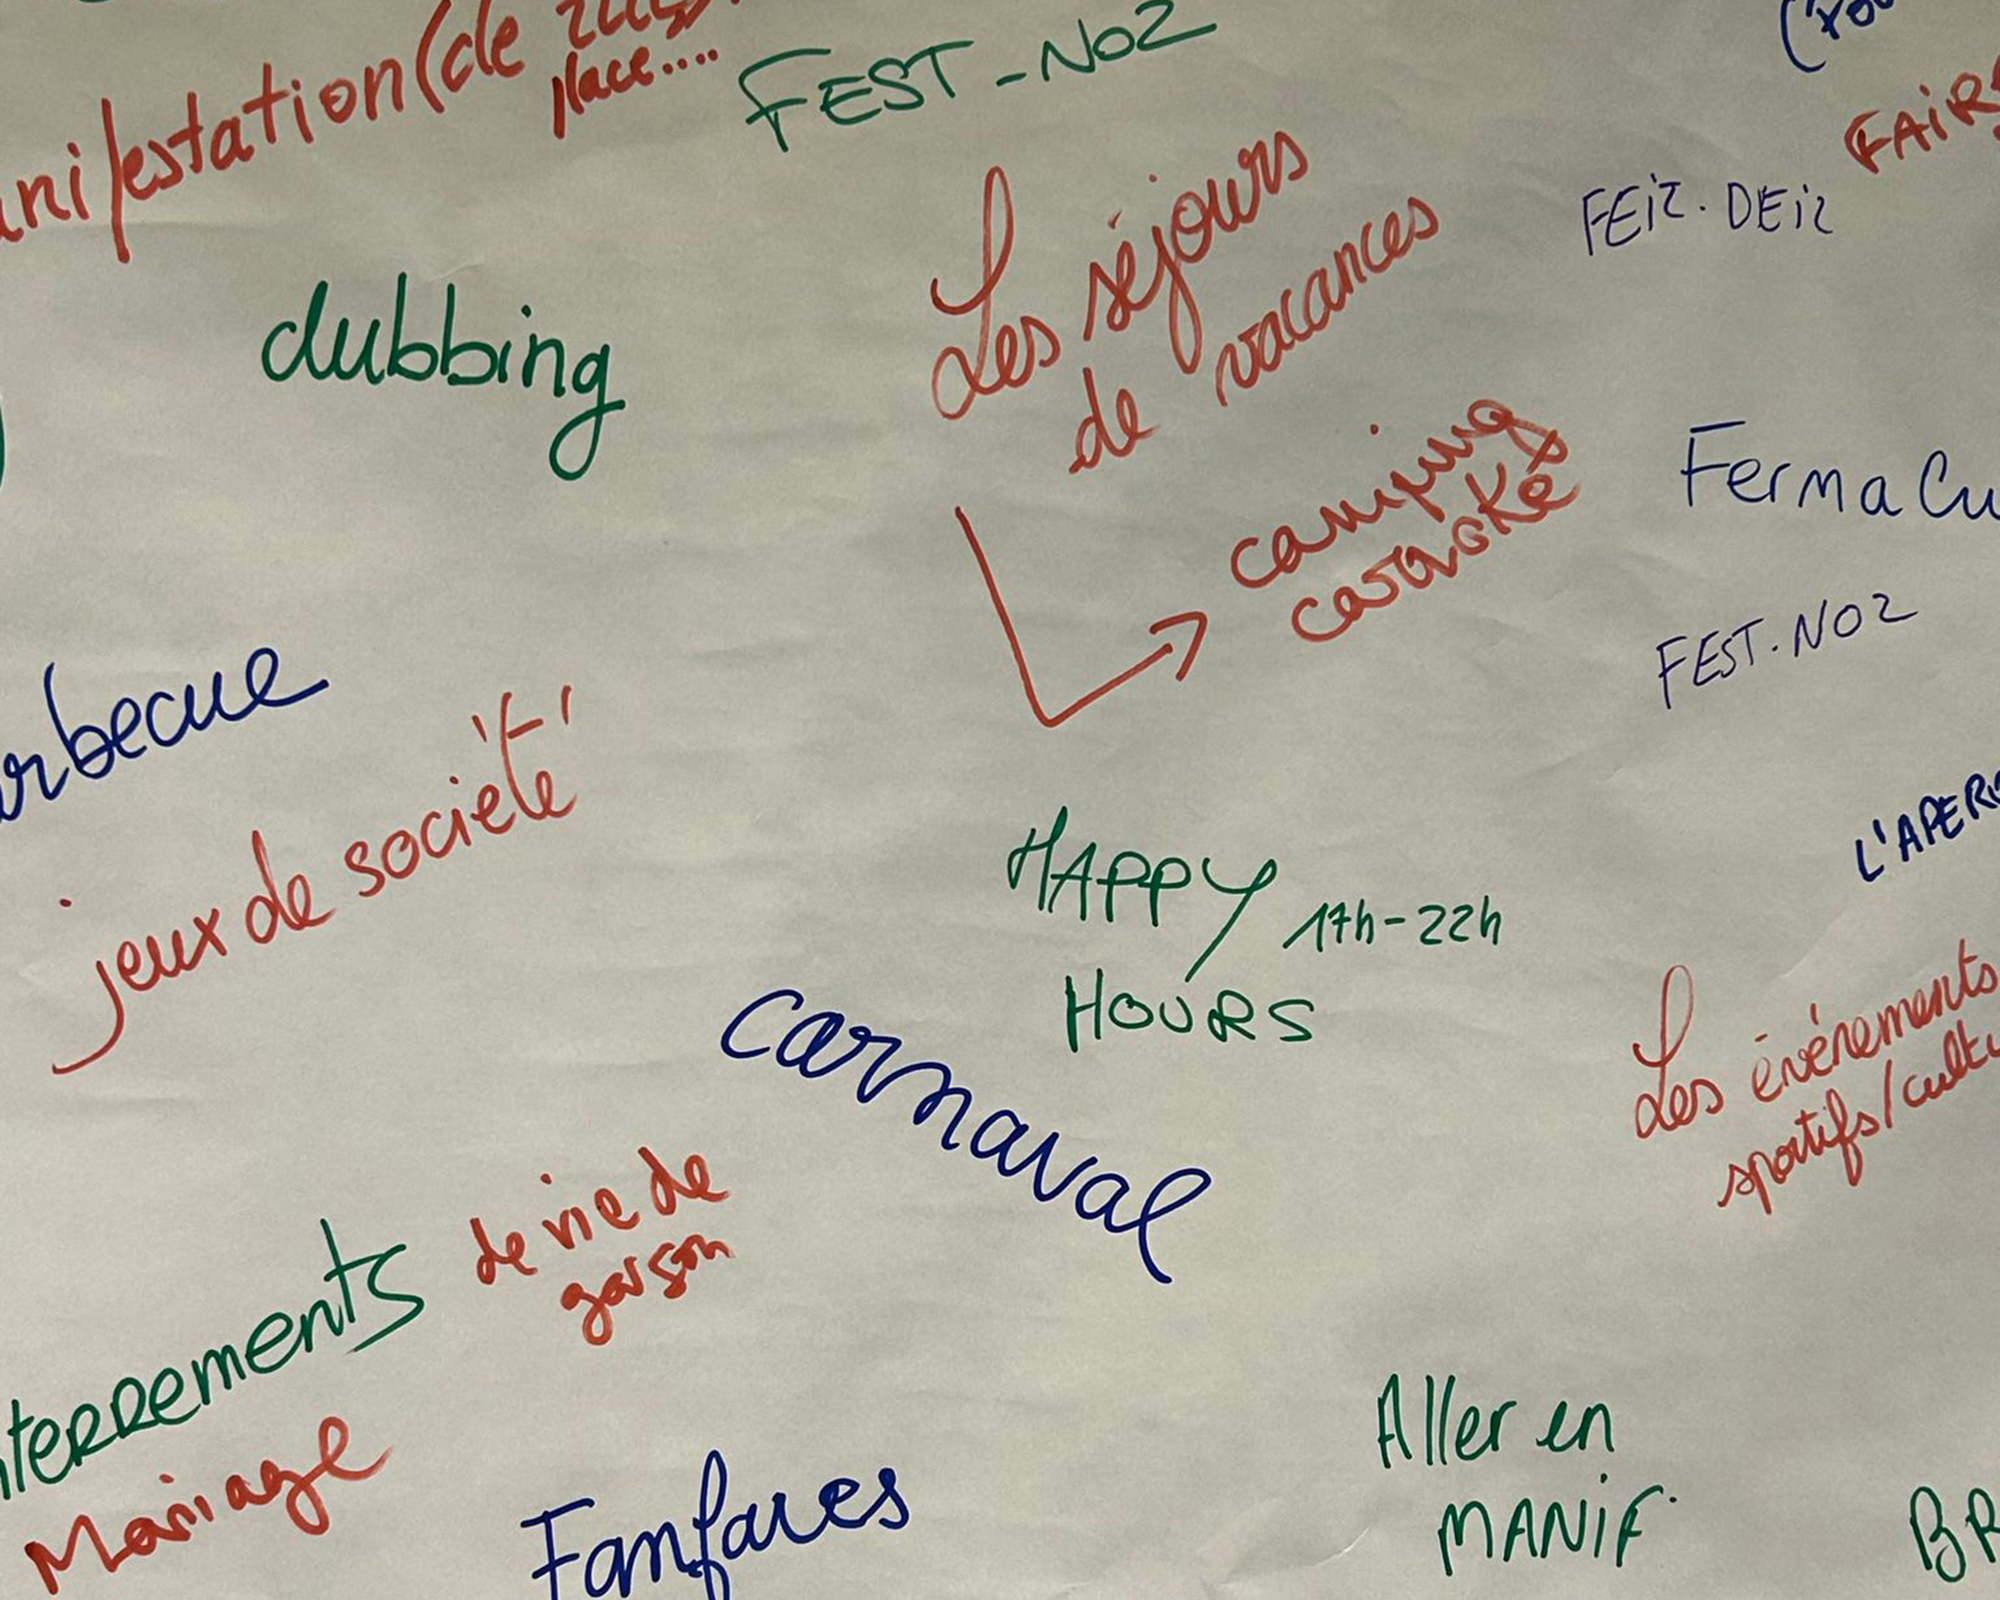 manifestation (de
place....
FEST-NOZ
FAIRE
FEIZ. DEIZ
clubbing
Les séjours
de vacances
camping
caraoké
Ferma Cu
FEST. NOZ
rbecue
jeux de société
L'APERO
HAPPY 17h-22h
HOURS
carnaval
Les événements
sportifs/cultu
de vie de
garson
nterrements
Mariage
Fanfares
Aller en
MANIF.
BR